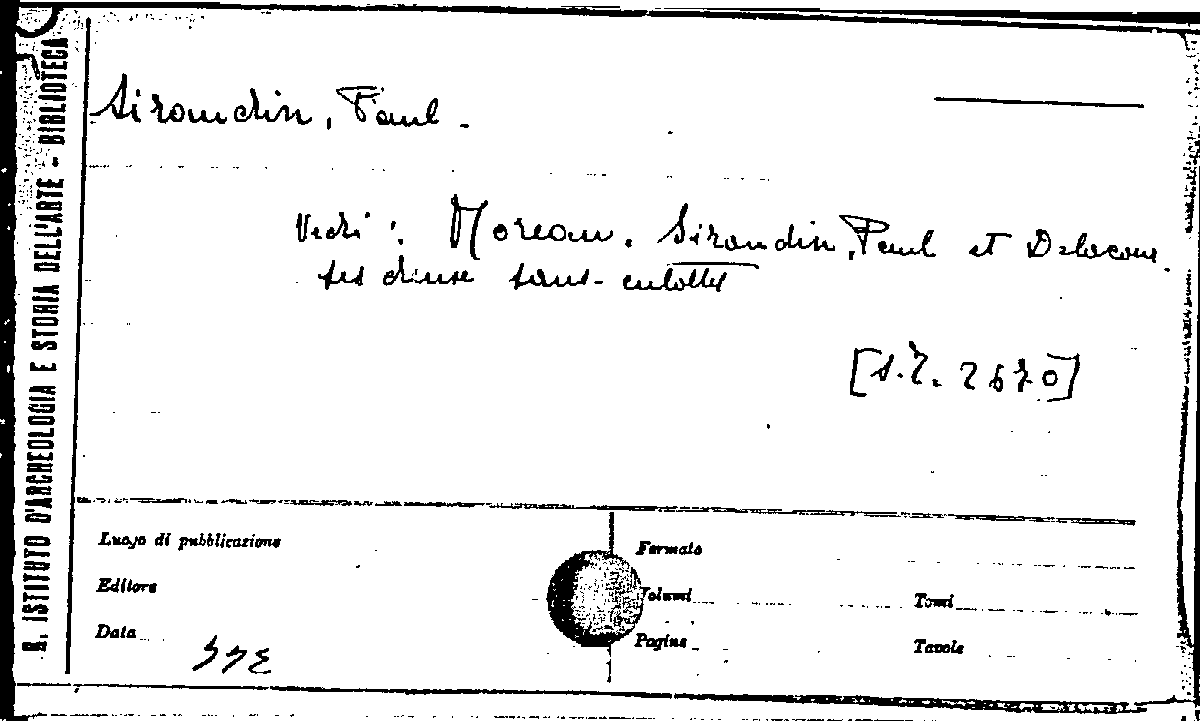 R. ISTITUTO D'ARCHEOLOGIA E STORIA DELL'ARTE - BIBLIOTECA
Siraudin, Paul.
Vedi: Moreau, Siraudin, Paul et Delacour.
sans-culottes
[s.7. 2670]
Luogo di pubblicazione
Editore
Data
Formato
Volumi
Tomi
Pagine
Tavole